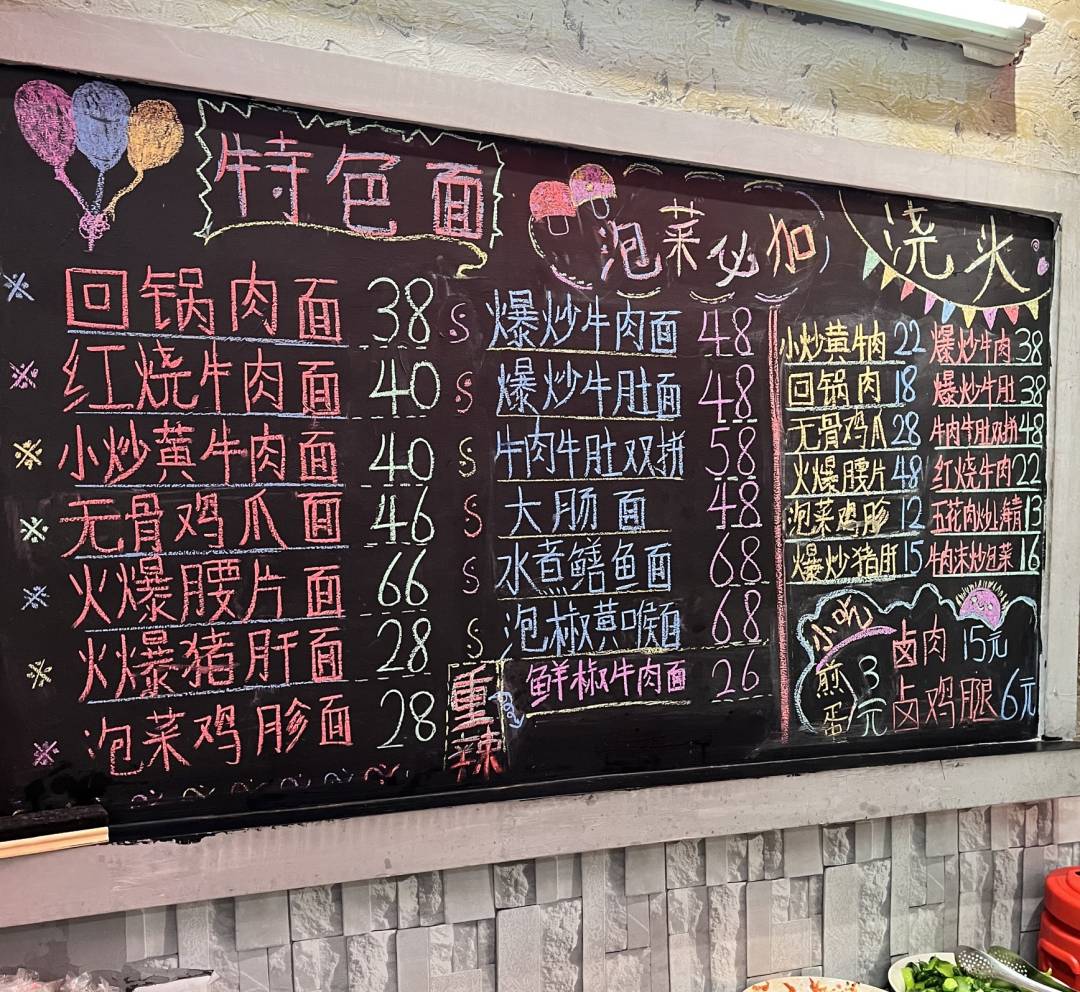 特色面
回锅肉面 38
红烧牛肉面 40
小炒黄牛肉面 40
无骨鸡爪面 46
火爆腰片面 66
火爆猪肝面 28
泡菜鸡胗面 28
泡菜必加
爆炒牛肉面 48
爆炒牛肚面 48
牛肉牛肚双拼 58
大肠面 48
水煮鳝鱼面 68
泡椒黄喉面 68
重辣
鲜椒牛肉面 26
浇头
小炒黄牛肉 22
回锅肉 18
无骨鸡爪 28
火爆腰片 48
泡菜鸡胗 12
爆炒猪肝 15
爆炒牛肉 38
爆炒牛肚 38
牛肉牛肚双拼 48
红烧牛肉 22
五花肉炒海鲭 13
牛肉末炒泡菜 16
小吃
煎蛋 3元
卤肉 15元
卤鸡腿 6元